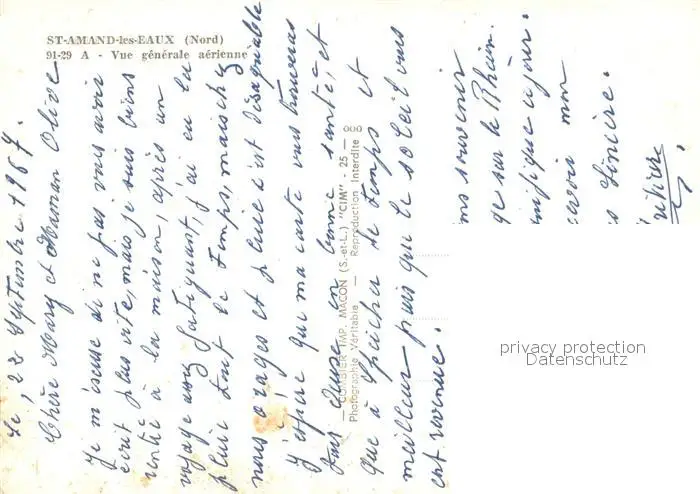 ST-AMAND-les-EAUX (Nord)
91-29 A - Vue générale aérienne
Le, 22 Septembre 1967.
Chère Mary et Maman Olive
Je m'excuse de ne pas vous avoir
écrit plus vite, mais je suis biens
rentré à la maison, après un
voyage assez fatiguant, j'ai eu la
pluie tout le temps, mais chez
nous orages et pluie c'est désagréable
J'espère que ma carte vous trouveras
tous deux en bonne santé, et
que à le temps et
meilleur puis que le soleil vous
est revenue.
COMBIER IMP. MACON (S.-et-L.) "CIM" - 25 - 000
Photographie Véritable - Reproduction Interdite
souvenir
sur le Rhin.
magnifique séjour.
mon
sincère.
privacy protection
Datenschutz